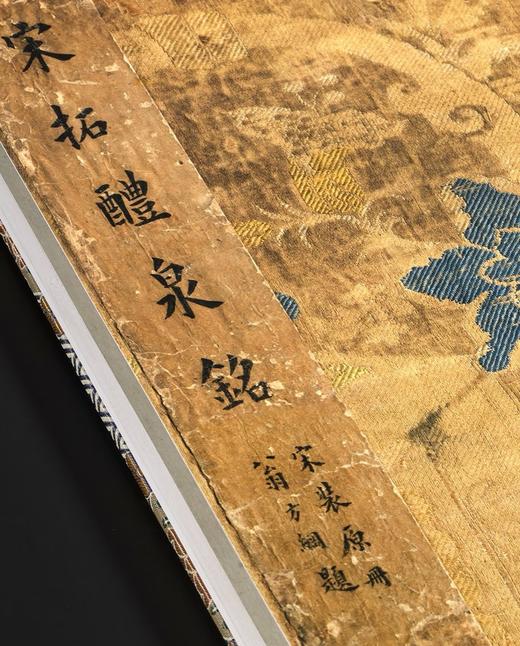 宋拓醴泉銘
宋裝原冊
翁方綱題